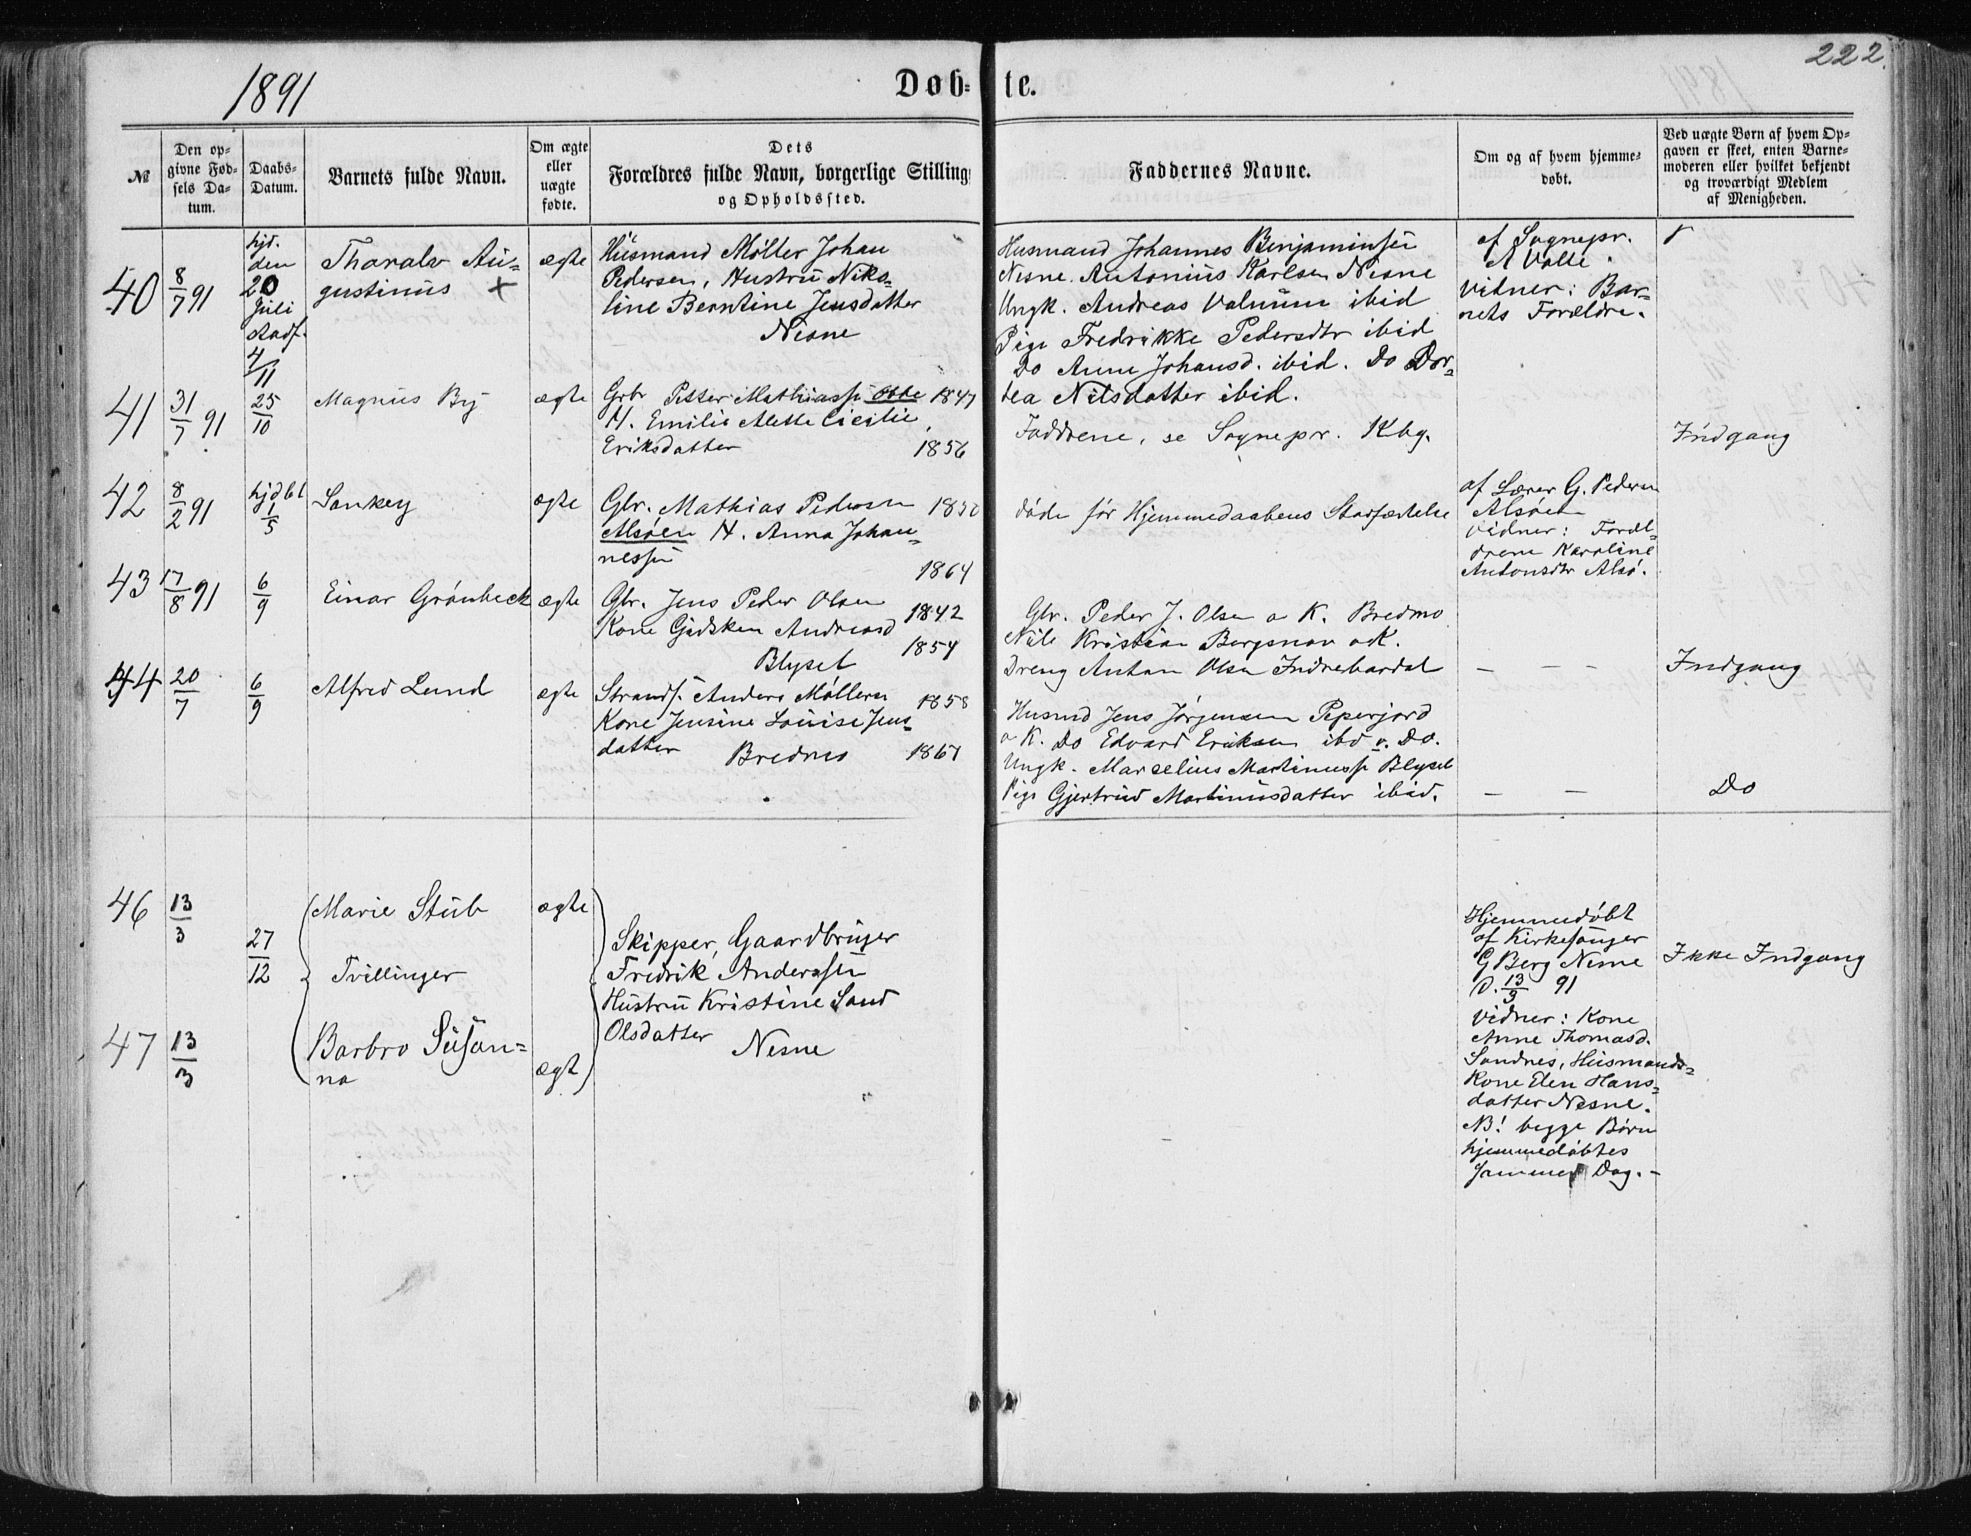 1891
Døb-
te.
222.
№
Den op-
givne Fød-
sels Da-
tum.
Daabs-
Datum.
Barnets fulde Navn.
Om ægte
eller
uægte
fødte.
Dets
Forældres fulde Navn, borgerlige Stilling
og Opholdssted.
Faddernes Navne.
Om og af hvem hjemme-
døbt.
Ved uægte Børn af hvem Op-
gaven er skeet, enten Barne-
moderen eller hvilket bekjendt
og troværdigt Medlem
af Menigheden.
40
8/7 91
hjd.
den
20
Juli
stadf.
4/11
Thoralv Au-
gustinus
ægte
Husmand Møller Johan
Pedersen, Hustru Niko-
line Berntine Jensdatter
Nesne
Husmand Johannes Benjaminsen
Nesne. Antonius Karlsen Nesne
Ungk. Andreas Valnum ibid
Pige Fredrikke Pedersdtr ibid
Do Anne Johansd. ibid. Do Dor-
tea Nilsdatter ibid.
af Sognepr.
A Volle.
Vidner: Bar-
nets Forældre.
41
31/7 91
25/10
Magnus By
ægte
Grbr Petter Mathiassen 1847
H. Emilie Mette Cicilie
Eriksdatter 1856
Faddrene, se Sognepr. Kbg.
Indgang
42
8/2 91
hjdbt
1/5
Sankey
ægte
Gbr. Mathias Pedersen
Alsøen H. Anna Johan-
nessen
1864
døde før Hjemmedaabens Stadfæstelse
af Lærer G. Pedersen
Alsøen
Vidner: Foræl-
drene Karoline
Antonsdtr Alsø.
43
17/8 91
6/9
Einar Grønbeck
ægte
Gbr. Jens Peder Olsen 1842
Kone Gjedsken Andreasd
1854
Blysel
Gbr. Peder J. Olsen o K. Bredmo
Nils Kristian Bergsnov o K.
Dreng Anton Olsen Indrebardal
Indgang
44
20/7
6/9
Alfred Lund
ægte
Strands. Anders Møllersen 1858
Kone Jensine Louise Jens-
datter Brednes 1867
Husmd Jens Jørgensen Peperjord
o K. Do Edvard Eriksen ibd o. Do.
Ungk. Marselius Martinussen Blysel
Pige Gjertrud Martinusdatter ibid.
Do
46
13/3
Marie Stub
ægte
27/12
Tvillinger
Skipper, Gaardbruger
Fredrik Anderssen
Hustru Kristine Sand
Olsdatter
Nesne
47
13/3
Barbro Susan-
na
ægt
Hjemmedøbt
af Kirkesanger
G Berg Nesne
D. 13/3 91
Vidner: Kone
Anne Thomasd.
Sandnes, Husmands-
kone Elen Hans-
datter Nesne.
NB! begge Børn
hjemmedøbtes
samme Dag.-
Ikke Indgang